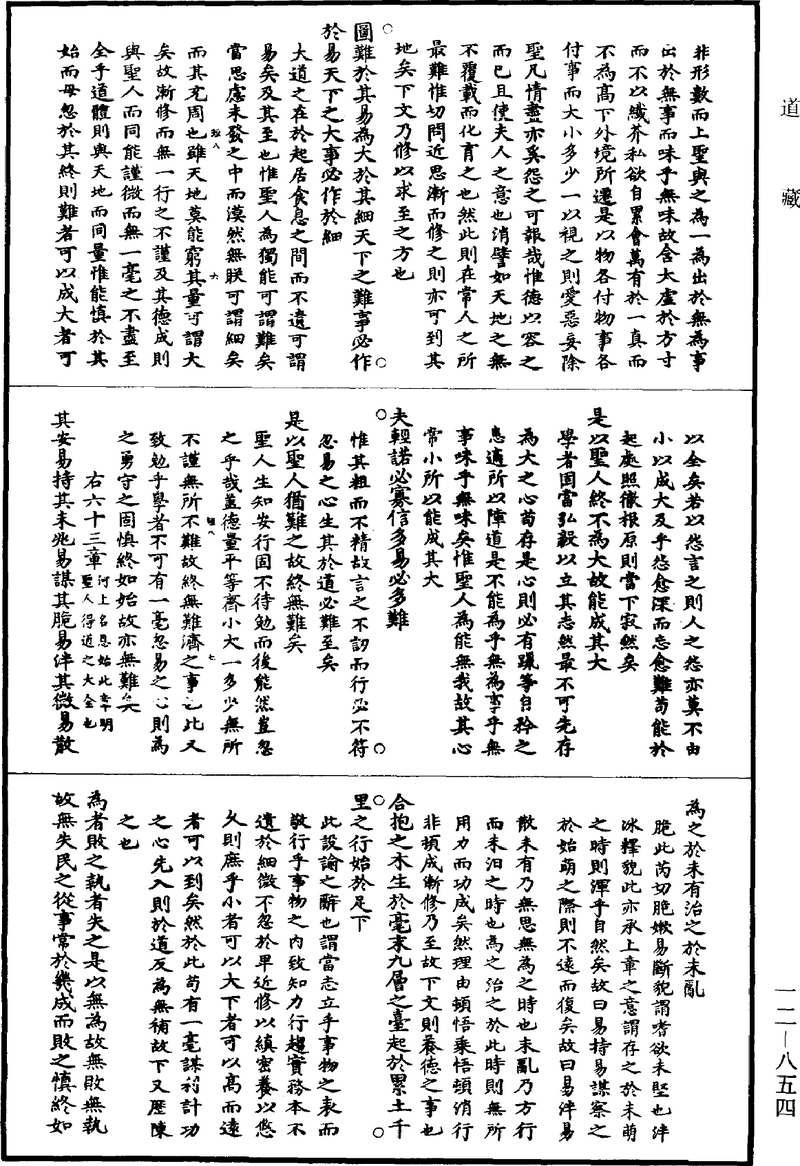 道藏
非形數而上聖與之為一為出於無為事
出於無事而味乎無味故含太虛於方寸
而不以纖芥私欲自累會萬有於一真而
不為高下外境所遷是以物各付物事各
付事而大小多少一以視之則愛惡妄除
聖凡情盡亦奚怨之可報哉惟德以容之
而已且使夫人之意也消譬如天地之無
不覆載而化育之也然此則在常人之所
最難惟切問近思漸而修之則亦可到其
地矣下文乃修以求至之方也
圖難於其易為大於其細天下之難事必作
於易天下之大事必作於細
大道之在於起居食息之間而不遺可謂
易矣及其至也惟聖人為獨能可謂難矣
當思慮未發之中而漠然無朕可謂細矣
而其充周也雖天地莫能窮其量可謂大
矣故漸修而無一行之不謹及其德成則
與聖人而同能謹微而無一毫之不盡至
全乎道體則與天地而同量惟能慎於其
始而毋忽於其終則難者可以成大者可
以全矣若以怨言之則人之怨亦莫不由
小以成大及乎怨愈深而忘愈難苟能於
起處照徹根原則當下寂然矣
是以聖人終不為大故能成其大
學者固當弘毅以立其志然最不可先存
為大之心苟存是心則必有躐等自矜之
患適所以障道是不能為乎無為事乎無
事味乎無味矣惟聖人為能無我故其心
常小所以能成其大
夫輕諾必寡信多易必多難
惟其粗而不精故言之不訒而行必不符
忽易之心生其於道必難至矣
是以聖人猶難之故終無難矣
聖人生知安行固不待勉而後能然豈忽
之乎哉蓋德量平等齊小大一多少無所
不謹無所不難故終無難濟之事也此又
致勉乎學者不可有一毫忽易之心則為
之勇守之固慎終如始故亦無難矣
右六十三章河上名恩始此章明聖人得道之大全也
其安易持其未兆易謀其脆易泮其微易散
為之於未有治之於未亂
脆此芮切脃嫩易斷貌謂嗜欲未堅也泮
冰釋貌此亦承上章之意謂存之於未萌
之時則渾乎自然矣故曰易持易謀察之
於始萌之際則不遠而復矣故曰易泮易
散未有乃無思無為之時也未亂乃方行
而未汩之時也為之治之於此時則無所
用力而功成矣然理由頓悟乘悟頓消行
非頓成漸修乃至故下文則養德之事也
合抱之木生於毫末九層之臺起於累土千
里之行始於足下
此設諭之辭也謂當志立乎事物之表而
敬行乎事物之內致知力行趨實務本不
遺於細微不忽於卑近修以縝密養以悠
久則庶乎小者可以大下者可以高而遠
者可以到矣然於此苟有一毫謀利計功
之心先入則於道反為無補故下又歷陳
之也
為者敗之執者失之是以無為故無敗無執
故無失民之從事常於幾成而敗之慎終如
一二—八五四